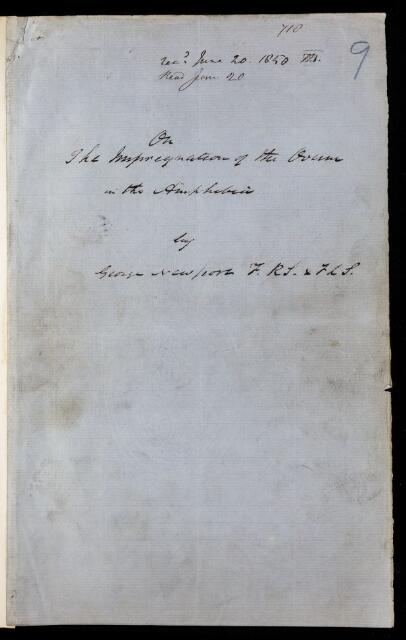 710
9
Recd. June 20. 1850 Ms.
Read June 20
On
The Impregnation of the Ovum
in the Amphibia
by
George Newport F. R. S. & F L S.